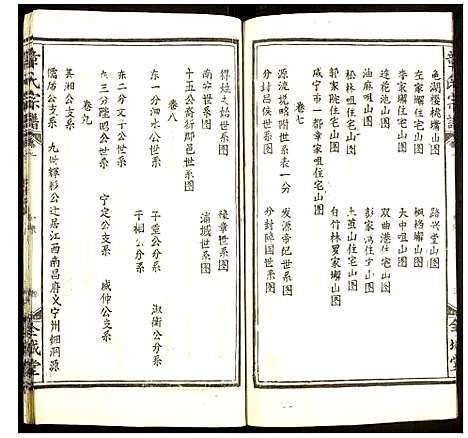 龟湖樱桃嘴山图　路兴堂山图
李家塅住宅山图　枫档塅山图
莲花池山图　夫中咀山图
油麻咀山图　双曲港住宅山图
松林咀住宅山图　彭家冯住宁山图
郭家院住宅山图　土茧山住宅图
咸宁市一都章家咀住宅山图　白竹林罗家塅山图
卷七
源流堤略附世系表一分　发源帝纪世系图
分封吕侯世系图　分封障国世系图
得姓之始世系图　豫章世系图
南安世系图　浦城世系图
十五公裔衍邵邑世系图
卷八
东一分泗水公分系　子重公分系　淑衡公分系
子相公分系
东二分文子公世系
东三分隆昭公世系　宁定公支系　咸仲公支系
卷九
芸湘公支系
儒居公支系　九世辉彩公迁居江西南昌府义宁州细洞源
章氏宗谱
全城堂